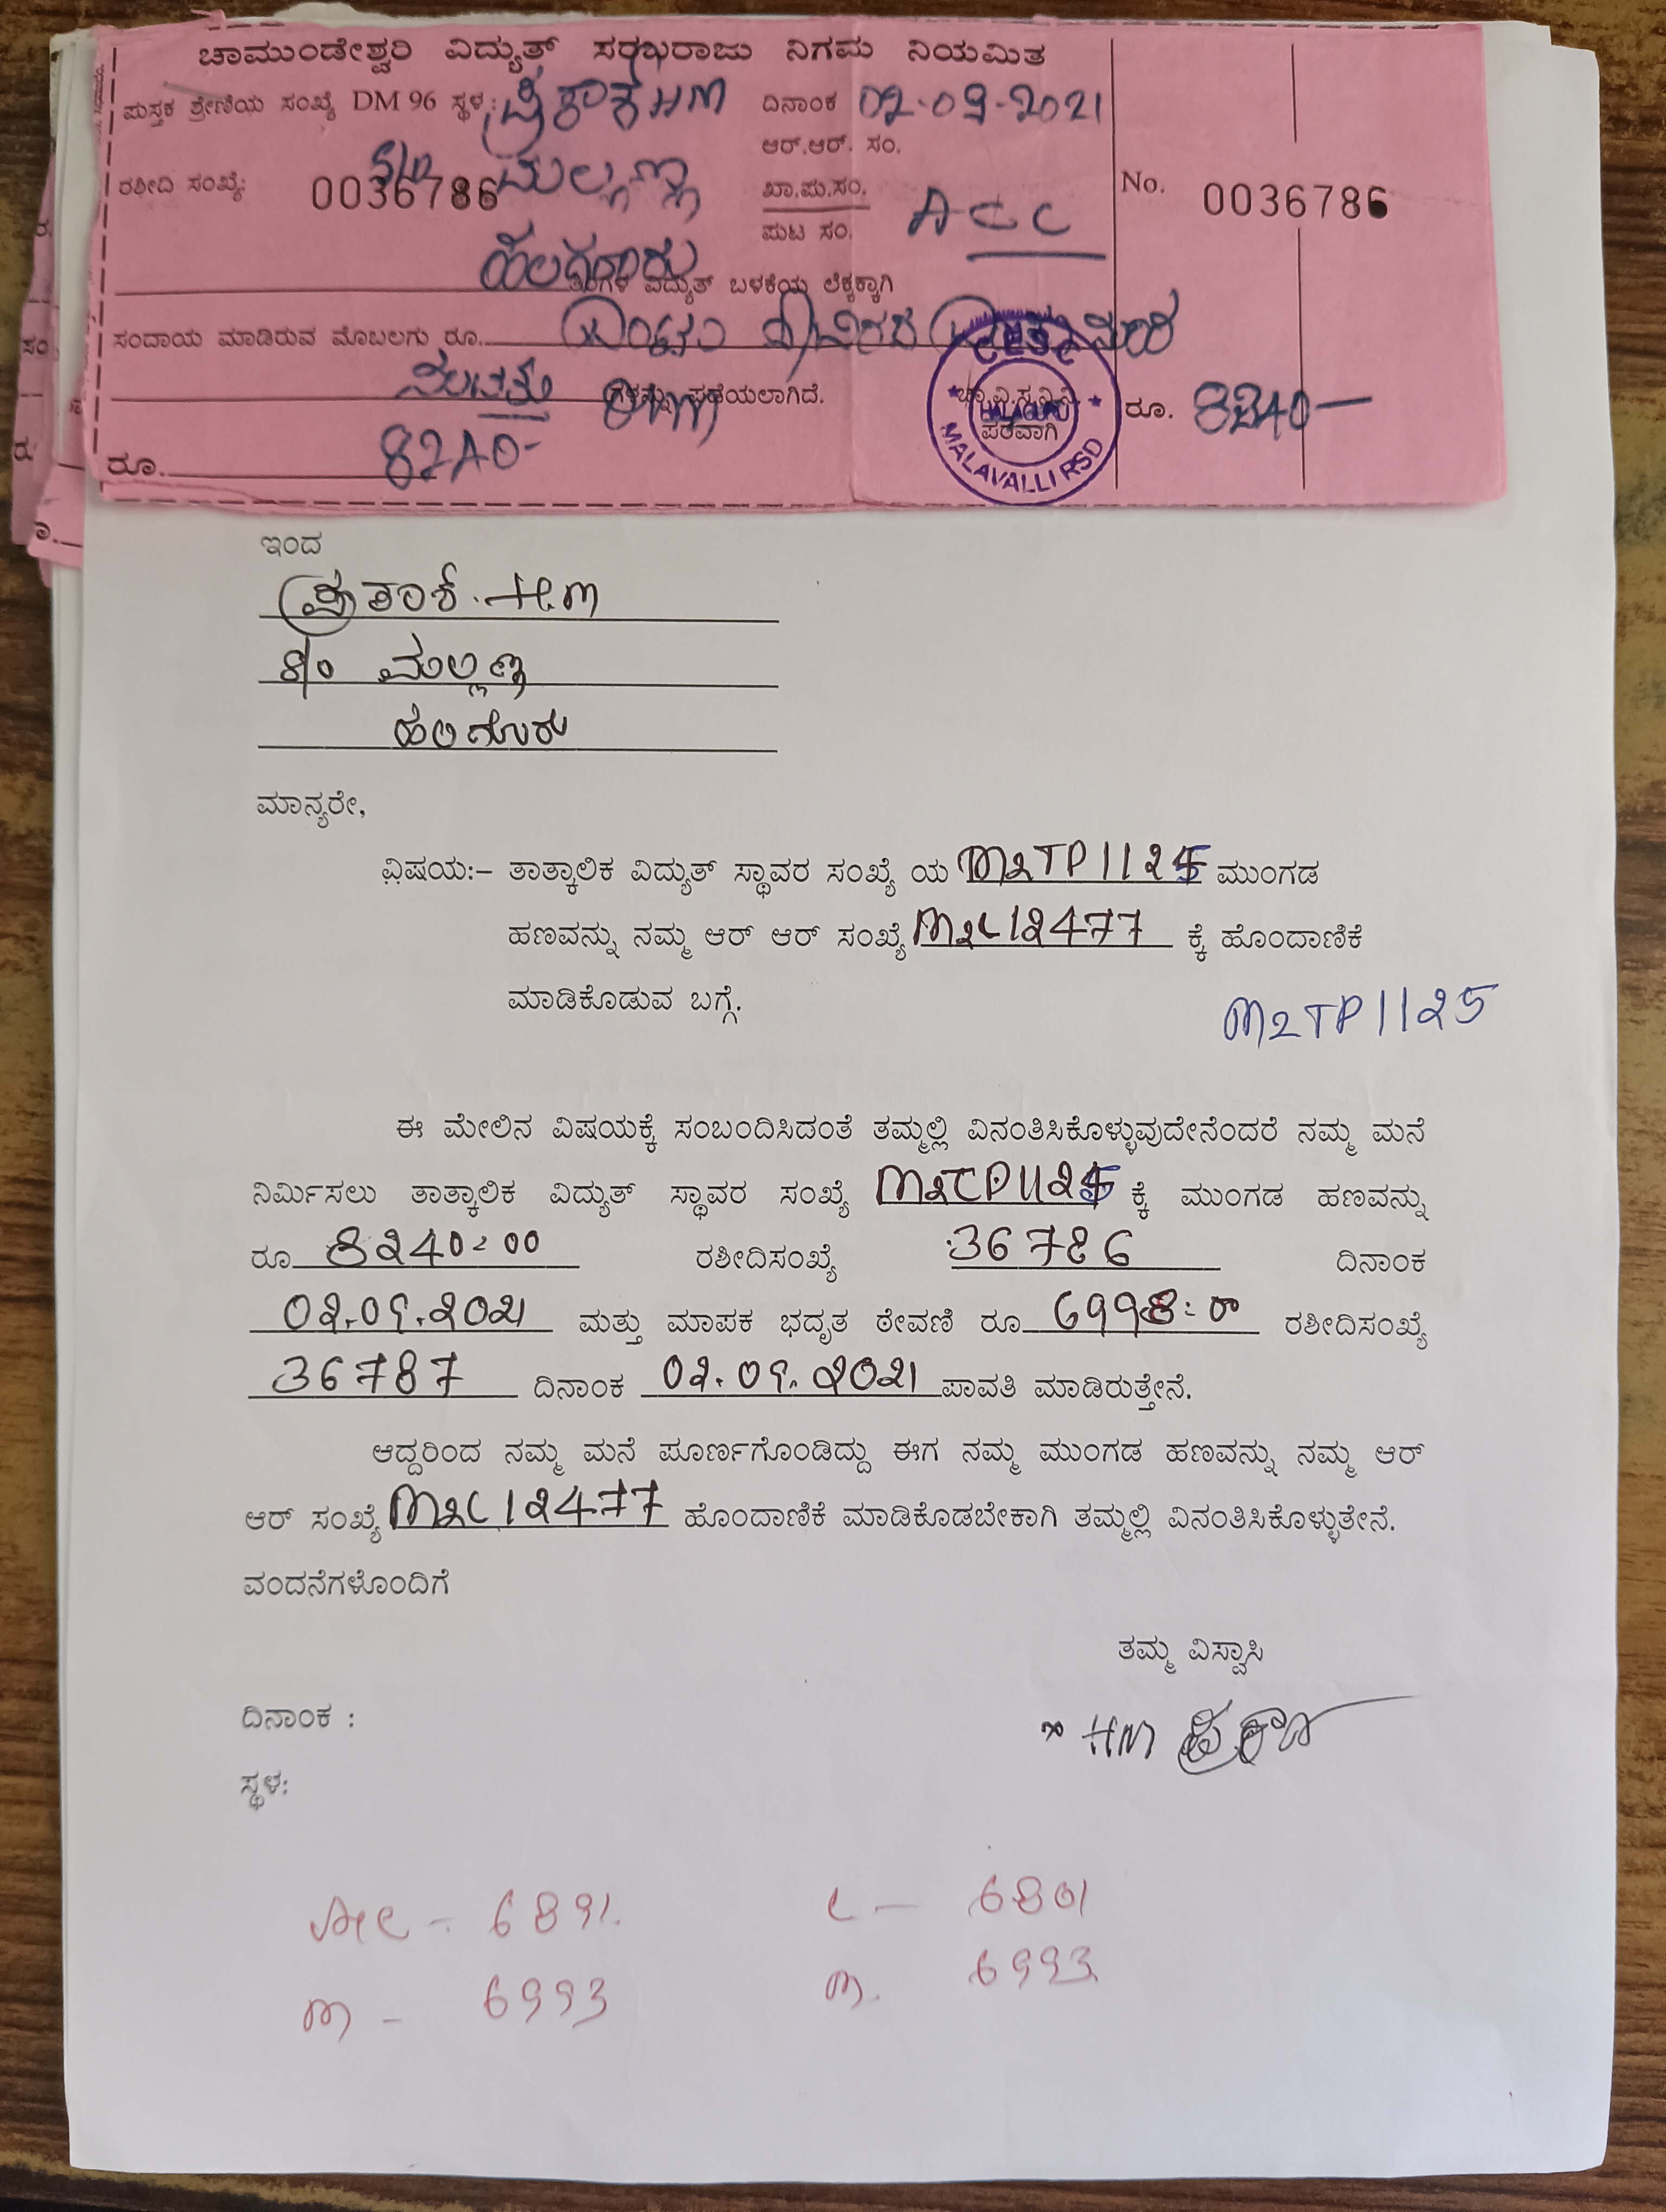 ಚಾಮುಂಡೇಶ್ವರಿ ವಿದ್ಯುತ್ ಸರಬರಾಜು ನಿಗಮ ನಿಯಮಿತ
ಪುಸ್ತಕ ಶ್ರೇಣಿಯ ಸಂಖ್ಯೆ DM 96 ಸ್ಥಳ: ಪ್ರಕಾಶ HM ದಿನಾಂಕ 02-09-2021
ಆರ್.ಆರ್. ಸಂ.
ರಶೀದಿ ಸಂಖ್ಯೆ: 0036786 S/o ಮಲ್ಲಣ್ಣ ಖಾ.ಪು.ಸಂ. No. 0036786
ಪುಟ ಸಂ. ACC
ಹಲಗೂರು
ವಿದ್ಯುತ್ ಬಳಕೆಯ ಲೆಕ್ಕಕ್ಕಾಗಿ
ಸಂದಾಯ ಮಾಡಿರುವ ಮೊಬಲಗು ರೂ.
ನಲವತ್ತು ಗಳನ್ನು ಪಡೆಯಲಾಗಿದೆ. ಚಾ.ವಿ.ಸ.ನಿ.ನಿ. ರೂ. 8240
ಪರವಾಗಿ
ರೂ. 8240-
CESC HALAGURU MALAVALLI RSD
ಇಂದ
ಪ್ರಕಾಶ್. H.M
S/o ಮಲ್ಲಣ್ಣ
ಹಲಗೂರು
ಮಾನ್ಯರೇ,
ವಿಷಯ:– ತಾತ್ಕಾಲಿಕ ವಿದ್ಯುತ್ ಸ್ಥಾವರ ಸಂಖ್ಯೆ ಯ M2TP1125 ಮುಂಗಡ
ಹಣವನ್ನು ನಮ್ಮ ಆರ್ ಆರ್ ಸಂಖ್ಯೆ M2L12477 ಕ್ಕೆ ಹೊಂದಾಣಿಕೆ
ಮಾಡಿಕೊಡುವ ಬಗ್ಗೆ.
M2TP1125
ಈ ಮೇಲಿನ ವಿಷಯಕ್ಕೆ ಸಂಬಂದಿಸಿದಂತೆ ತಮ್ಮಲ್ಲಿ ವಿನಂತಿಸಿಕೊಳ್ಳುವುದೇನೆಂದರೆ ನಮ್ಮ ಮನೆ
ನಿರ್ಮಿಸಲು ತಾತ್ಕಾಲಿಕ ವಿದ್ಯುತ್ ಸ್ಥಾವರ ಸಂಖ್ಯೆ M2TP1125 ಕ್ಕೆ ಮುಂಗಡ ಹಣವನ್ನು
ರೂ 8240=00 ರಶೀದಿಸಂಖ್ಯೆ 36786 ದಿನಾಂಕ
02.09.2021 ಮತ್ತು ಮಾಪಕ ಭದೃತ ಠೇವಣಿ ರೂ 6998=00 ರಶೀದಿಸಂಖ್ಯೆ
36787 ದಿನಾಂಕ 02.09.2021 ಪಾವತಿ ಮಾಡಿರುತ್ತೇನೆ.
ಆದ್ದರಿಂದ ನಮ್ಮ ಮನೆ ಪೂರ್ಣಗೊಂಡಿದ್ದು ಈಗ ನಮ್ಮ ಮುಂಗಡ ಹಣವನ್ನು ನಮ್ಮ ಆರ್
ಆರ್ ಸಂಖ್ಯೆ M2L12477 ಹೊಂದಾಣಿಕೆ ಮಾಡಿಕೊಡಬೇಕಾಗಿ ತಮ್ಮಲ್ಲಿ ವಿನಂತಿಸಿಕೊಳ್ಳುತೇನೆ.
ವಂದನೆಗಳೊಂದಿಗೆ
ತಮ್ಮ ವಿಸ್ವಾಸಿ
HM ಪ್ರಕಾಶ
ದಿನಾಂಕ :
ಸ್ಥಳ:
6891 L – 6801
m – 6993 m. 6993